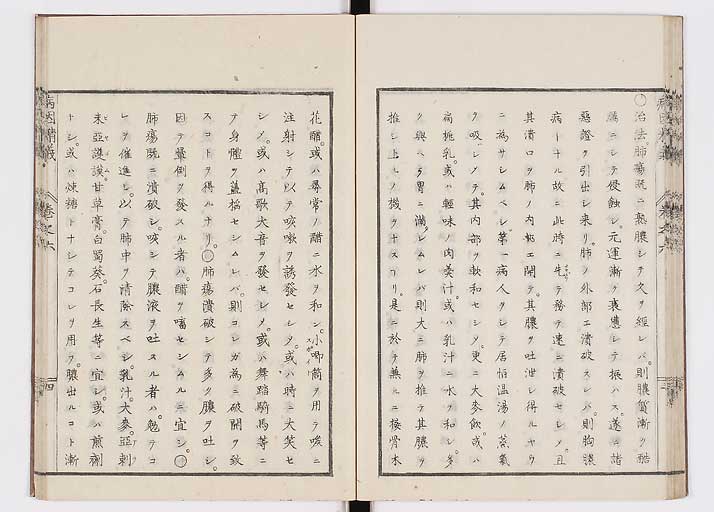 〇治法。肺瘍既ニ熟膿シテ久ヲ經レバ。則膿質漸ク酷
厲ニシテ侵蝕シ。元運漸ク衰憊シテ振ハス。遂ニ諸
惡證ヲ引出シ來リ。肺ノ外部ニ潰破スレバ。則胸膿
病トナル故ニ此時ニ先テ務テ速ニ潰破セシメ。且
其潰口ヲ肺ノ内部ニ開テ。其膿ヲ吐泄シ得ルヤウ
ニ為サシムベシ。第一病人ヲシテ居恒温湯ノ蒸氣
ヲ吸シメテ。其内部ヲ軟和セシメ。更ニ大麥飲。或ハ
扁桃乳。或ハ輕味ノ肉羹汁。或ハ乳汁ニ水ヲ和シ。多
ク與ヘテ胃ニ滿シムレバ則大ニ肺ヲ推テ其膿ヲ
推シ上ルノ機ヲナスナリ。是ニ於テ無ルニ接骨木
花醋。或ハ尋常ノ醋ニ水ヲ和シ。小喞筒ヲ用テ喉ニ
注射シテ。以テ咳嗽ヲ誘發セシメ。或ハ時ニ大笑セ
シメ。或ハ高歌大音ヲ發セシメ。或ハ舞踏騎馬等ニ
テ身體ヲ盪搖セシムレバ。則コレガ為ニ破開ヲ致
スコトヲ得ルナリ。〇肺瘍潰破シテ多ク膿ヲ吐シ。
因テ暈倒ヲ發スル者ハ。醋ヲ嗅セシムルニ宜シ。〇
肺瘍既ニ潰破シ。咳シテ膿液ヲ吐スル者ハ。勉テコ
レヲ催進シ。以テ肺中ヲ清除スベシ。乳汁。大麥。亞剌
未亞護謨。甘草膏。白蜀葵。石長生等ニ宜シ。或ハ煎劑
トシ。或ハ煉藥トナシテコレヲ用フ。膿出ルコト漸
病因精義
卷之六
四